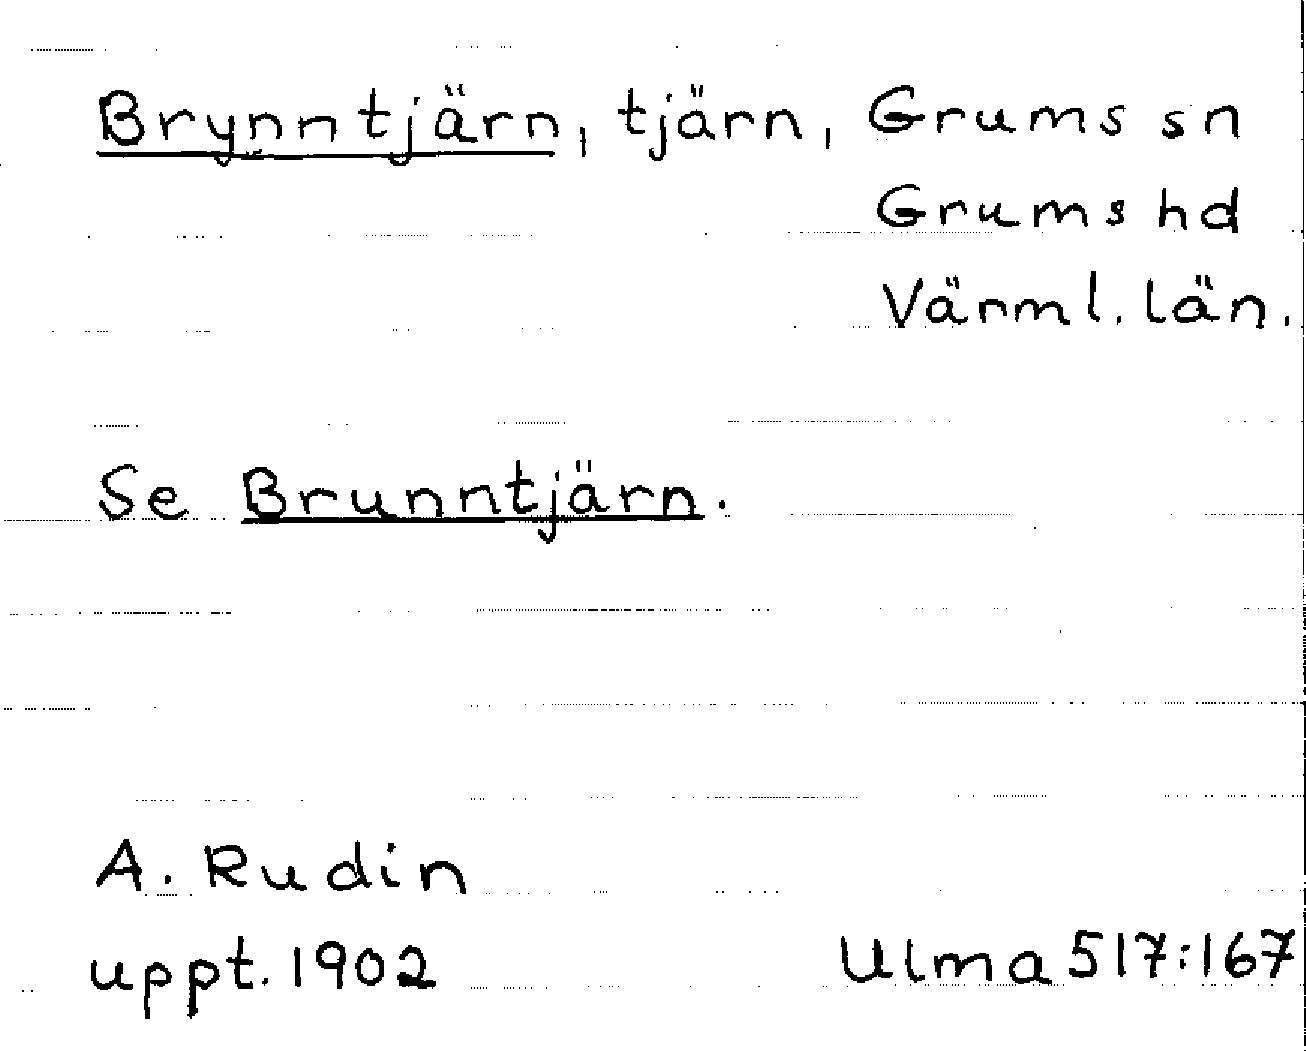 Brynntjärn, tjärn, Grums sn
Grums hd
Värml. län.
Se Brunntjärn.
A. Rudin
uppt. 1902
Ulma 517:167